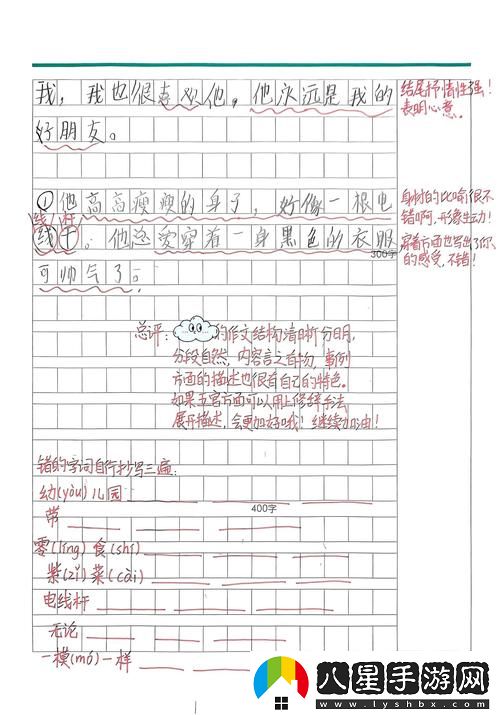 我，我也很喜欢他，他永远是我的
好朋友。
结尾抒情性强！
表明心意。
①他高高瘦瘦的身子，好像一根电
线杆
线干。他总爱穿着一身黑色的衣服
可帅气了。
身材的比喻很不
错啊，形象生动！
穿着方面也写出了你
的感受，不错！
300字
总评：
的作文结构清晰分明，
分段自然，内容言之有物，事例
方面的描述也很有自己的特色。
如果五官方面可以用上修辞手法
展开描述，会更加好哦！继续加油！
错的字词自行抄写三遍：
幼(yòu)儿园
400字
带
零(líng)食(shí)
紫(zǐ)菜(cài)
电线杆
无论
一模(mó)一样
八星手游网
www.lyshbx.com